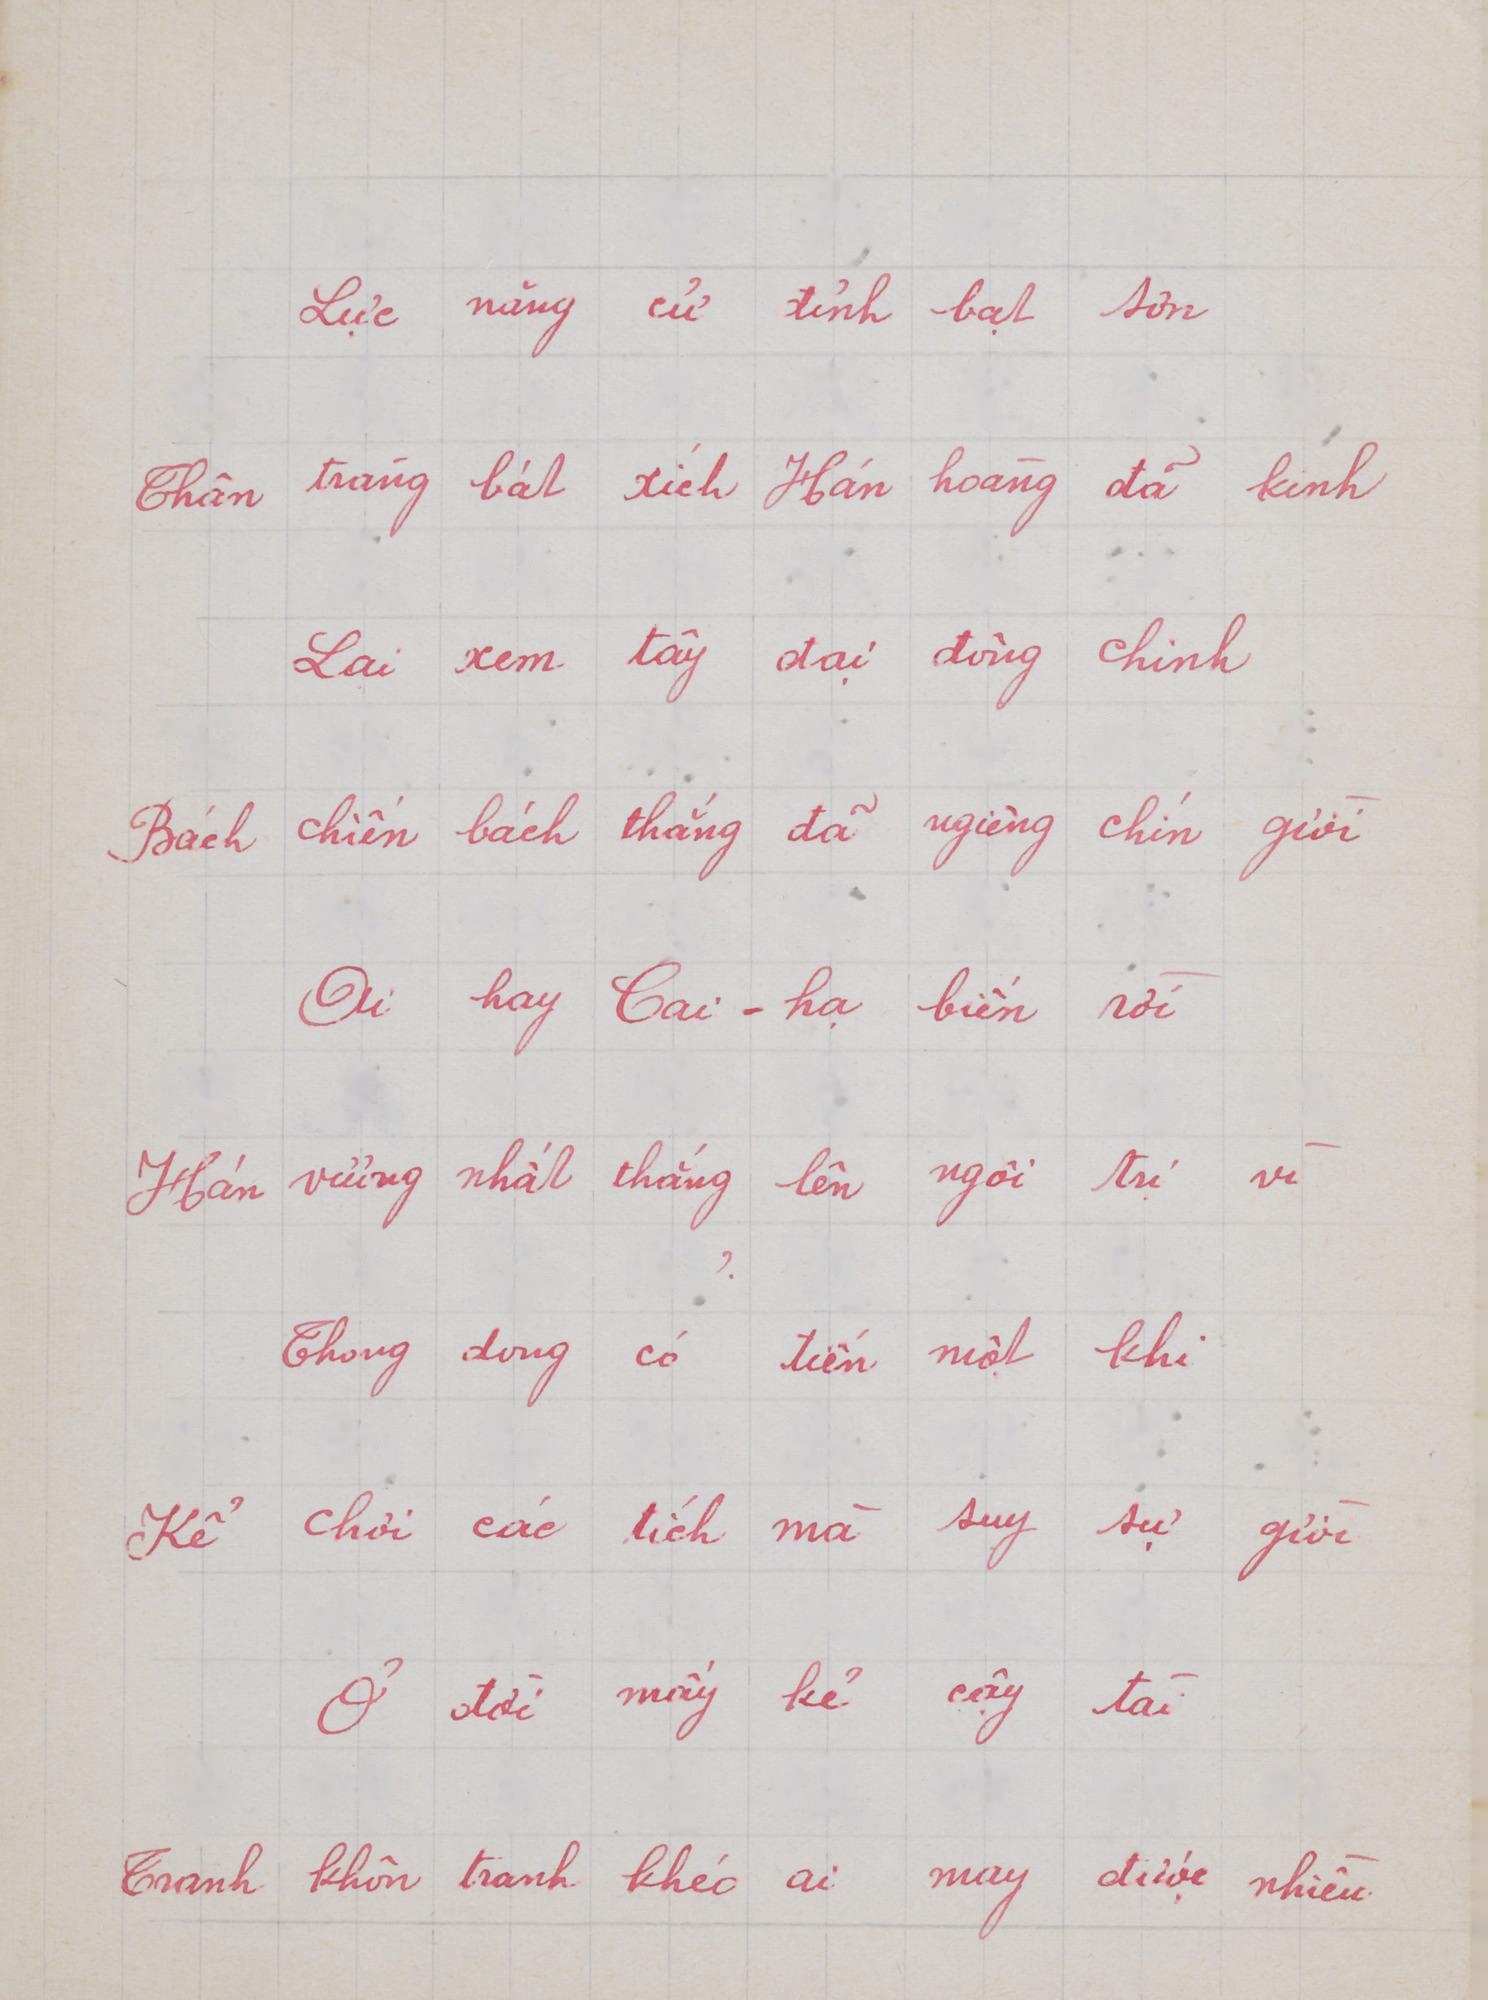 Lực năng cử đỉnh bạt sơn
Thân tràng bát xích Hán hoàng đã kinh
Lai xem tây đại đông chinh
Bách chiến bách thắng đã ngiêng chín giời
Ơi hay Cai-hạ biến rồi
Hán vương nhất thắng lên ngôi trị vì
?
Thong dong có tiến một khi
Kể chơi các tích mà suy sự giời
Ở đời mấy kẻ cậy tài
Tranh khôn tranh khéo ai may được nhiều